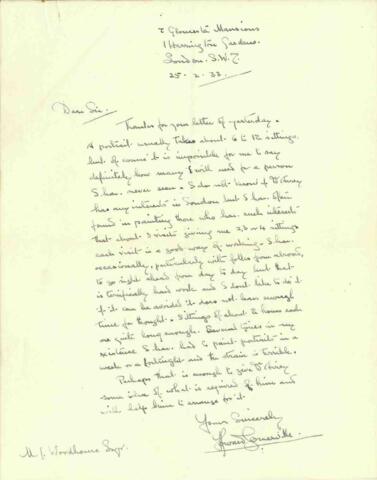 2 Gloucester Mansions
1 Harrington Gardens.
London. S.W.7.
25. 2. 33.
Dear Sir.
Thanks for your letter of yesterday.
A portrait usually takes about 6 to 12 sittings
but of course it is impossible for me to say
definitely how many I will need for a person
I have never seen. I do not know if
has any interests in London but I have often
found in painting those who has such interests
that about 3 visits giving me 2, 3 or 4 sittings
each visit is a good way of working. I have
occasionally, particularly with folks from abroad,
to go right ahead from day to day but that
is terrifically hard work and I dont like to do it
if it can be avoided it does not leave enough
time for thought. Sittings of about 2 hours each
are quite long enough. Several times in my
existence I have had to paint portrait in a
week or a fortnight and the strain is terrible.
Perhaps that is enough to give
some idea of what is required of him and
will help him to arrange for it.
Yours Sincerely
Howard Somerville
M. J. Woodhouse Esqr.